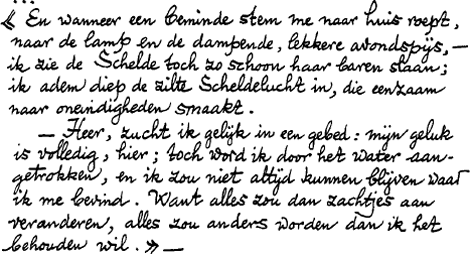 ...
« En wanneer een beminde stem me naar huis roept,
naar de lamp en de dampende, lekkere avondspijs, —
ik zie de Schelde toch zo schoon haar baren slaan;
ik adem diep de zilte Scheldelucht in, die eenzaam
naar oneindigheden smaakt.
— Heer, zucht ik gelijk in een gebed: mijn geluk
is volledig, hier; toch word ik door het water aan-
getrokken, en ik zou niet altijd kunnen blijven waar
ik me bevind. Want alles zou dan zachtjes aan
veranderen, alles zou anders worden dan ik het
behouden wil. » —